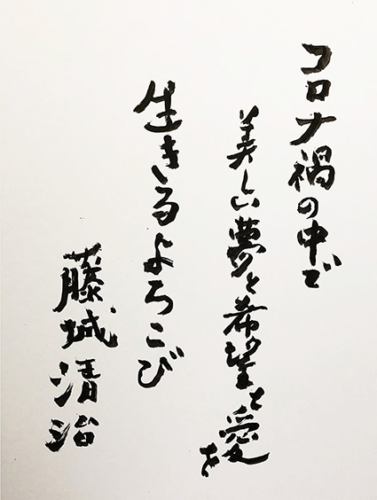 コロナ禍の中で
美しい夢と希望と愛を
生きるよろこび
藤城清治